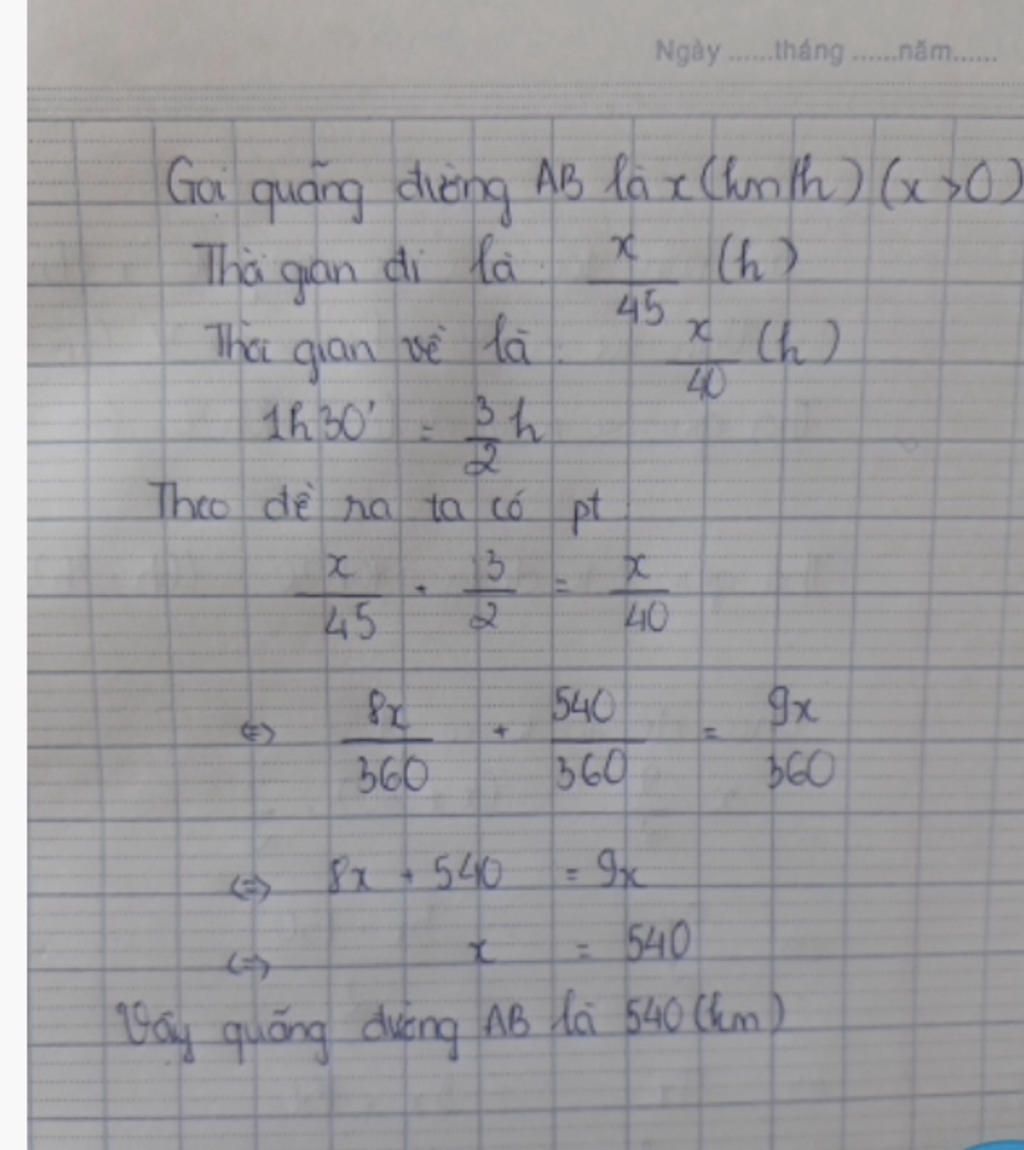 Ngày ......tháng ......năm......
Gọi quãng đường AB là x (km/h) (x > 0)
Thời gian đi là : x/45 (h)
Thời gian về là : x/40 (h)
1h30' = 3/2 h
Theo đề ra ta có pt :
x/45 + 3/2 = x/40
<=> 8x/360 + 540/360 = 9x/360
<=> 8x + 540 = 9x
<=> x = 540
Vậy quãng đường AB là 540 (km)